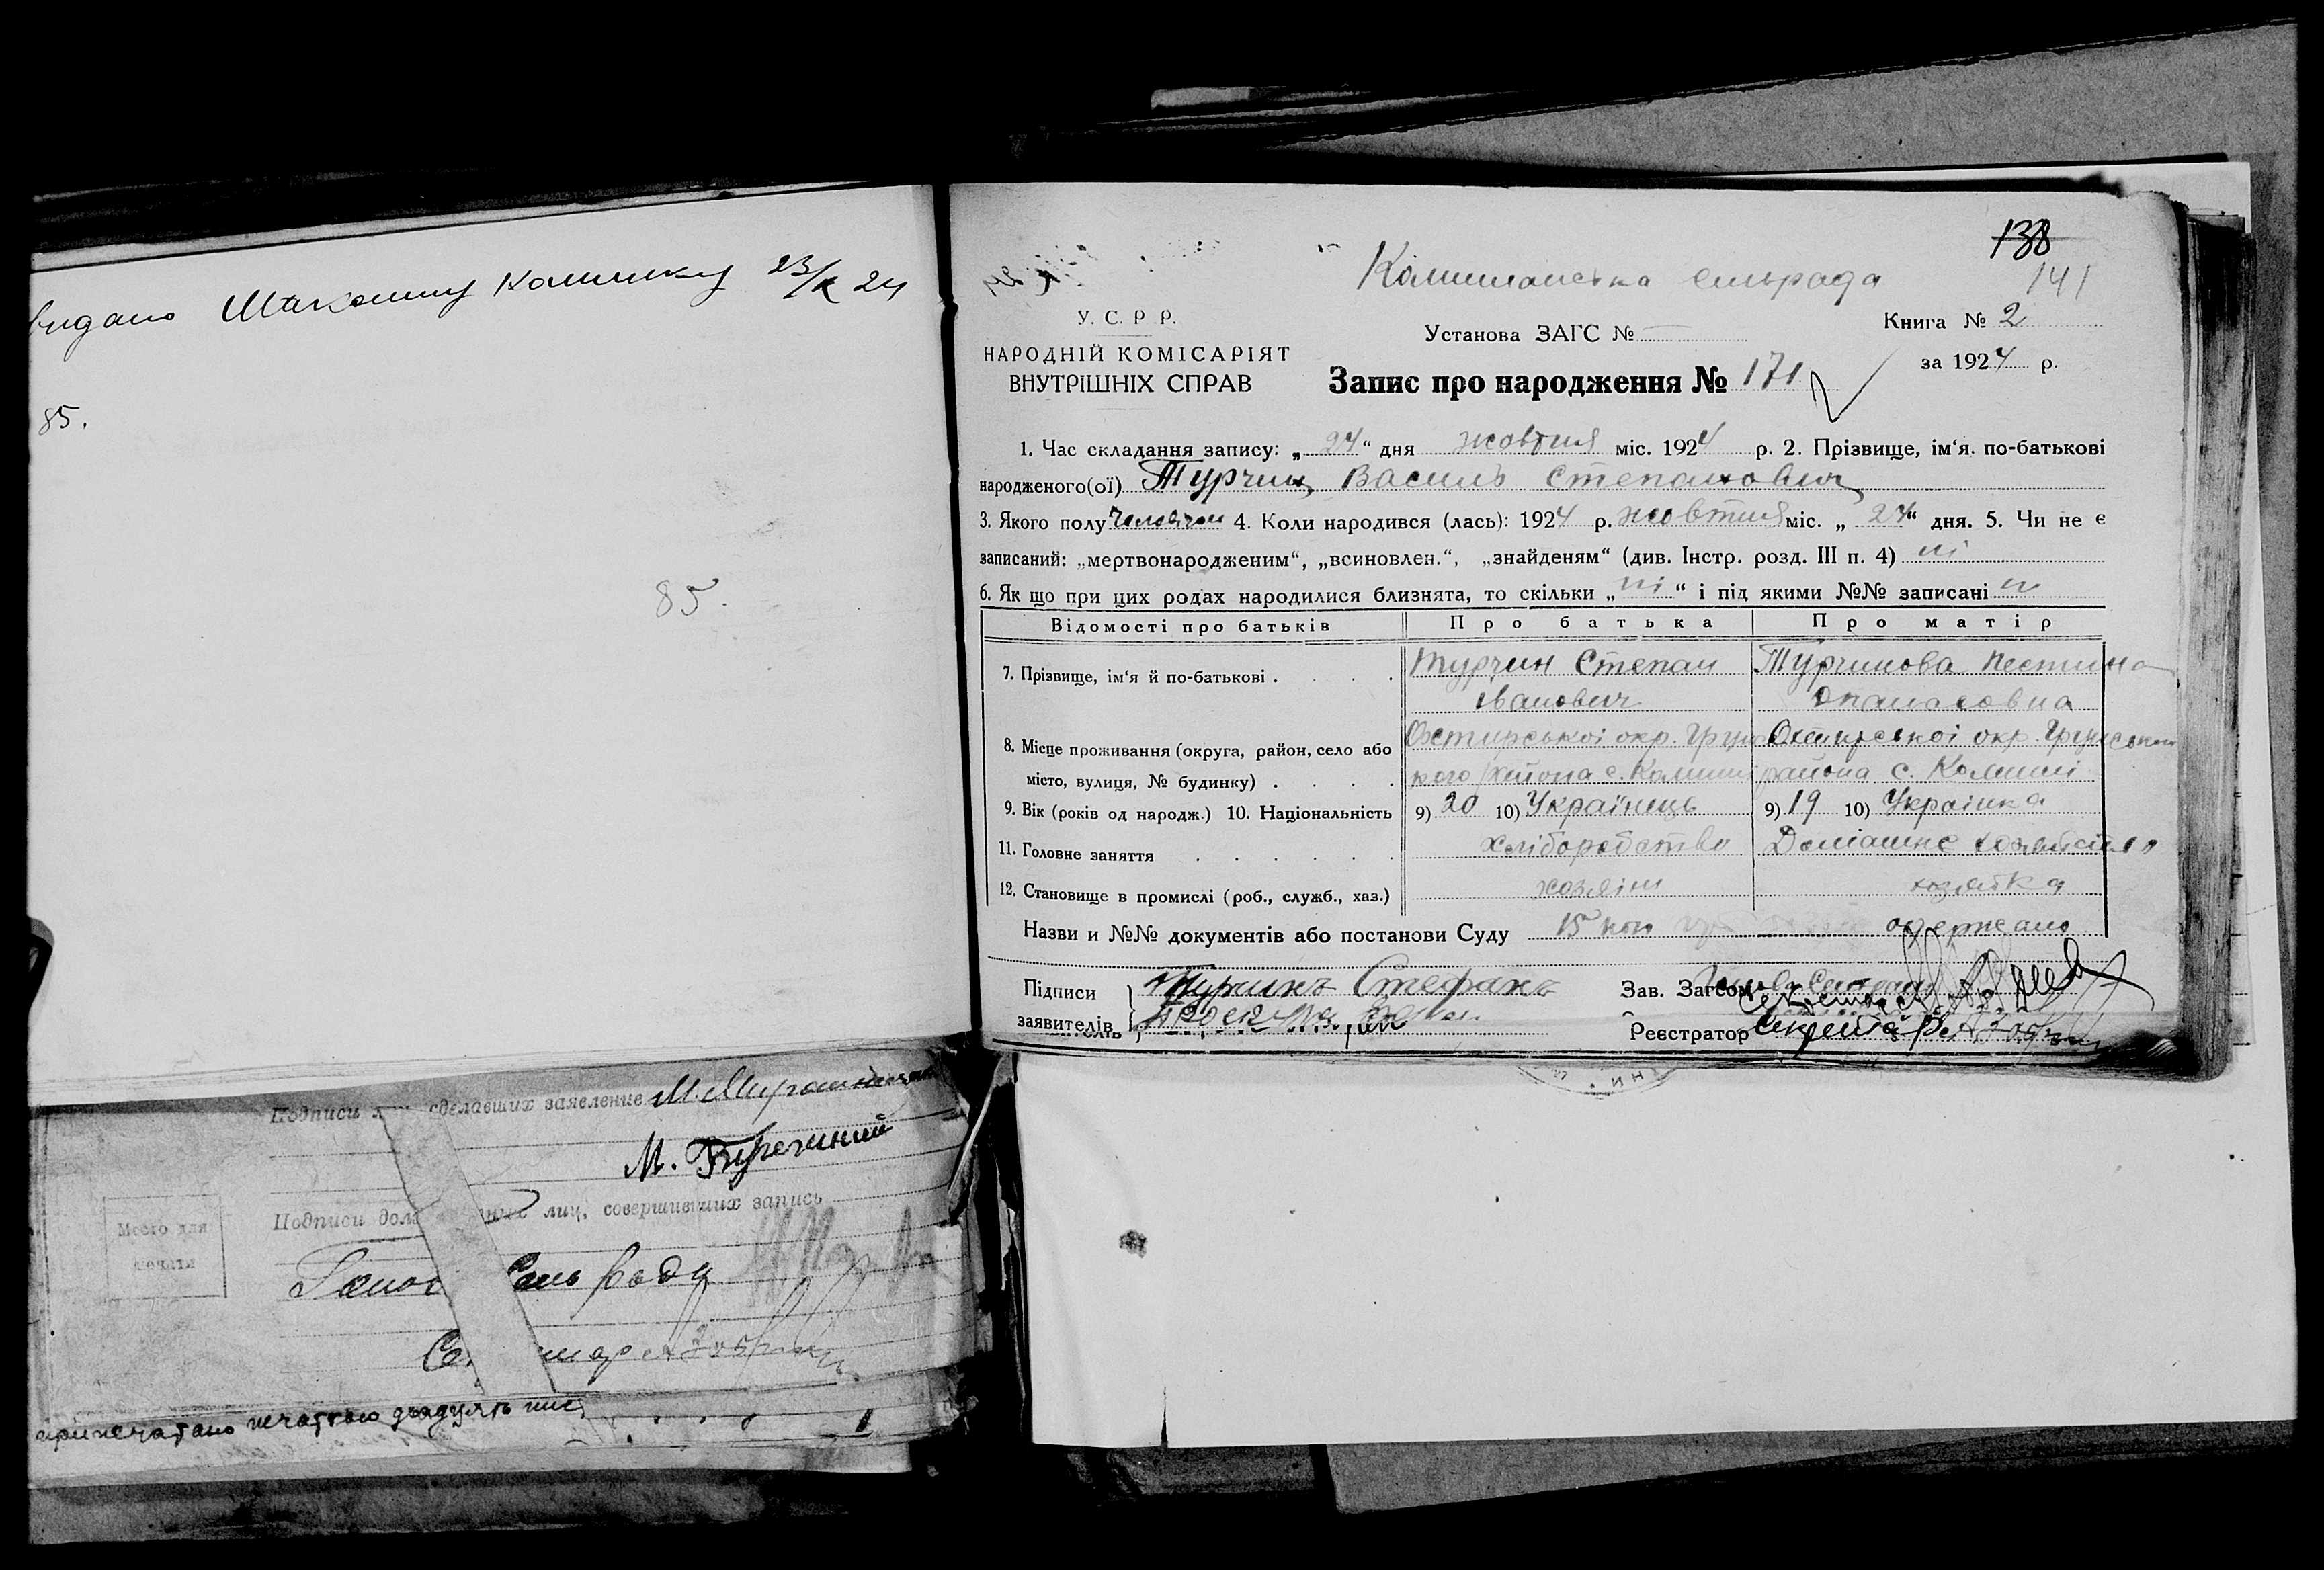 видано Шакошну Комишку 23/X 24
85.
85.
Подписи сделавших заявление
М.
Место для
печати
Подписи лиц, совершивших запись
припечатано печаттю
138
141
Комишанська сильрада
У. С. Р. Р.
НАРОДНІЙ КОМІСАРІЯТ
ВНУТРІШНІХ СПРАВ
Установа ЗАГС №
Книга № 2
за 1924 р.
Запис про народження № 171
1. Час складання запису: „24“ дня жовтня міс. 1924 р. 2. Прізвище, ім‘я. по-батькові
народженого(ої) Турчин Василь Степанович
3. Якого полу человічеи 4. Коли народився (лась): 1924 р. жовтня міс. „24“ дня. 5. Чи не є
записаний: „мертвонародженим“, „всиновлен.“, „знайденям“ (див. Інстр. розд. III п. 4) ні
6. Як що при цих родах народилися близнята, то скільки „ні“ і під якими №№ записані н
Відомості про батьків Про батька Про матір
7. Прізвище, ім‘я й по-батькові . . . . Турчин Степан Турчинова Пестина
Іванович Опанасовна
8. Місце проживання (округа, район, село або Охтирськоі окр. Грунсь Охтирськоі окр. Грунського
місто, вулиця, № будинку) . . . . кого района с. Комиші района с. Комиші
9. Вік (років од народж.) 10. Національність 9) 20 10) Українець 9) 19 10) Украінка
11. Головне заняття . . . . . . хліборобство Доміашнє хозяйство
12. Становище в промислі (роб., служб., хаз.) хозяін хозяйка
Назви и №№ документів або постанови Суду 15 коп одержано
Підписи Турчинъ Стефанъ
заявителів
Зав. Загсом
Реєстратор Секретар